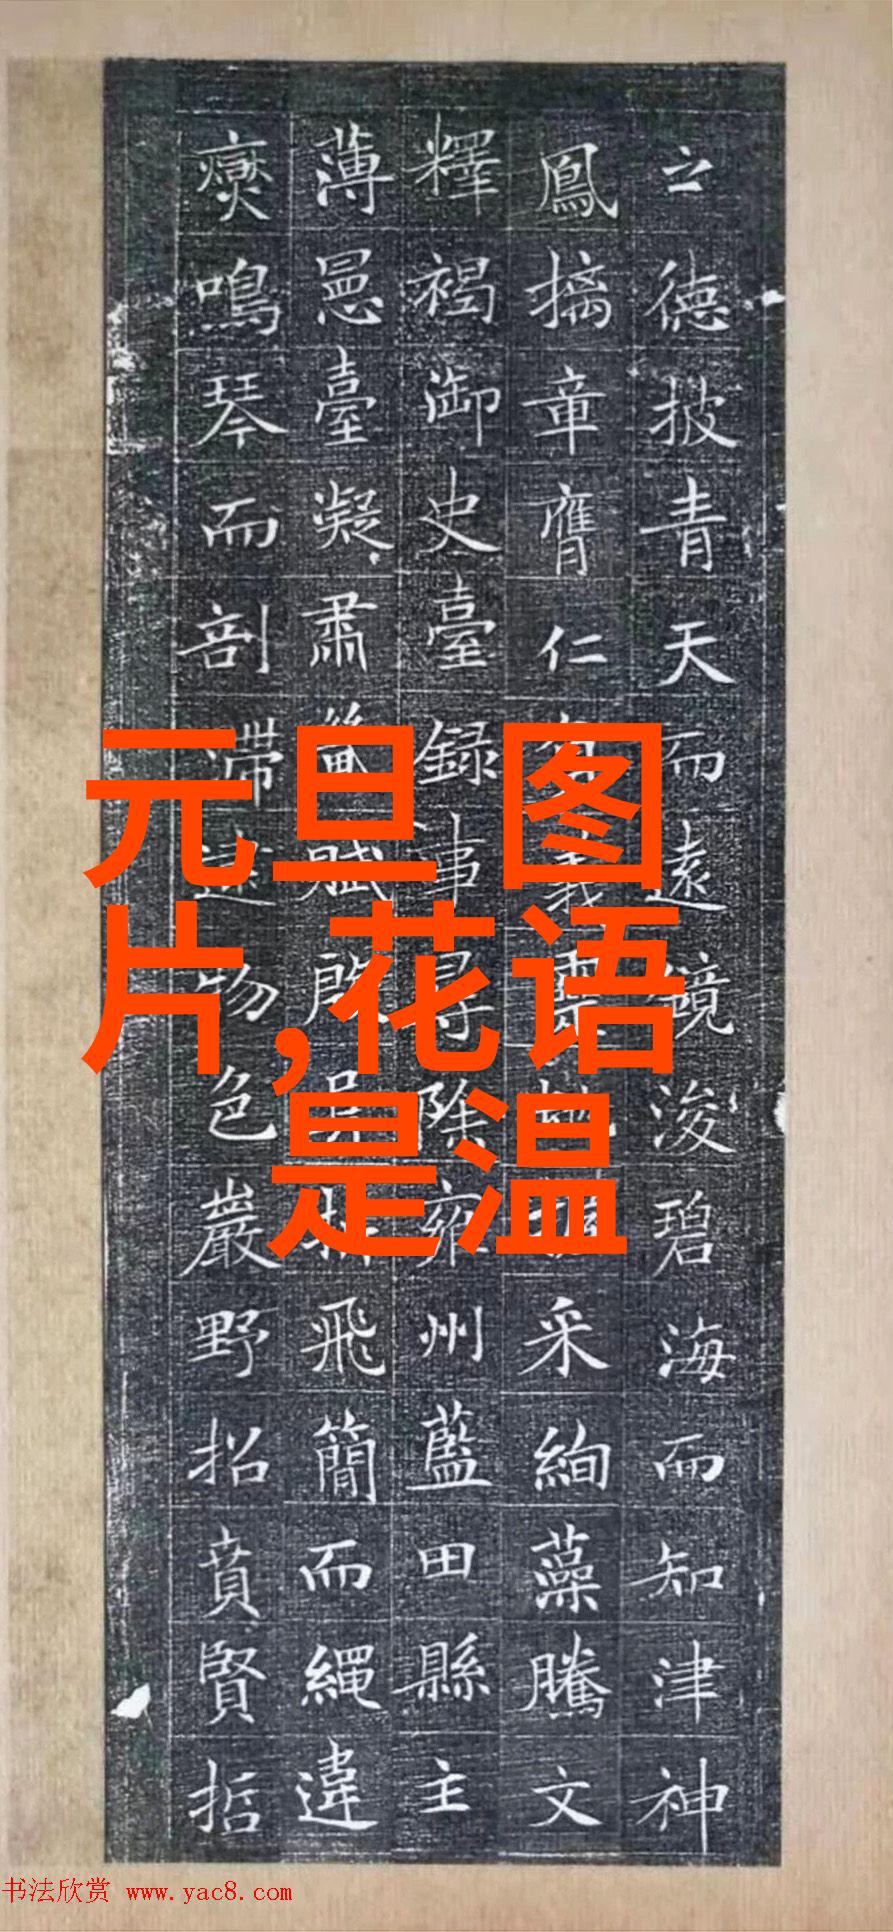 之德披青天而遠鏡浚碧海而知津神
鳳摛章膺仁采絢藻騰文
釋褐御史臺録事尋除雍州藍田縣主
薄邑臺凝肅飛簡而繩違
爕鳴琴而剖滞色巖野招賁賢哲
元旦 图
片,花语
是温
书法欣赏 www.yac8.com